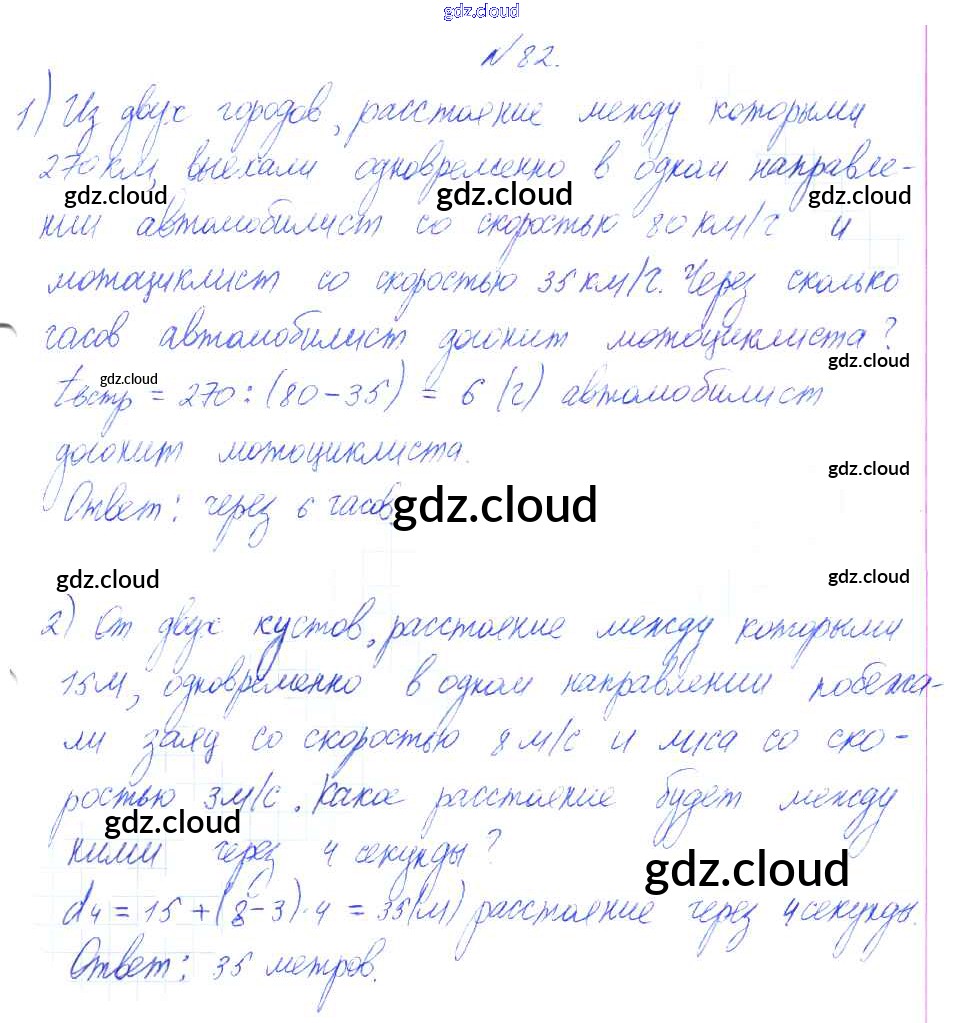 gdz.cloud
№ 82.
1) Из двух городов, расстояние между которыми
270 км, выехали одновременно в одном направле-
gdz.cloud gdz.cloud gdz.cloud
нии автомобилист со скоростью 80 км/ч и
мотоциклист со скоростью 35 км/ч. Через сколько
часов автомобилист догонит мотоциклиста?
gdz.cloud
gdz.cloud
tвстр = 270 : (80 - 35) = 6 (ч) автомобилист
догонит мотоциклиста.
gdz.cloud
Ответ: через 6 часов.
gdz.cloud
gdz.cloud gdz.cloud
2) От двух кустов, расстояние между которыми
15 м, одновременно в одном направлении побежа-
ли заяц со скоростью 8 м/с и лиса со ско-
ростью 3 м/с. Какое расстояние будет между
gdz.cloud
ними через 4 секунды?
gdz.cloud
d4 = 15 + (8 - 3) · 4 = 35 (м) расстояние через 4 секунды.
Ответ: 35 метров.